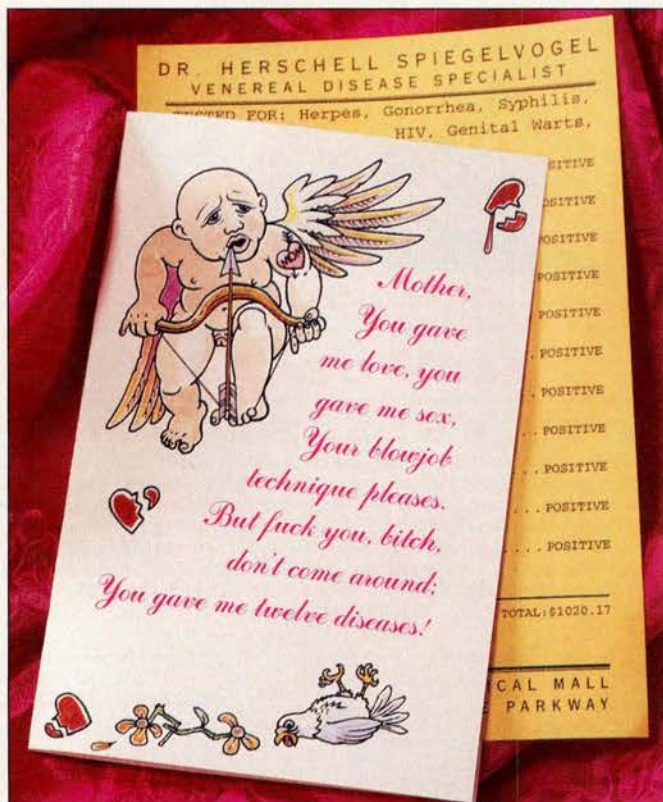 DR. HERSCHELL SPIEGELVOGEL
VENEREAL DISEASE SPECIALIST
TESTED FOR: Herpes, Gonorrhea, Syphilis,
HIV, Genital Warts,
SITIVE
OSITIVE
POSITIVE
POSITIVE
POSITIVE
. POSITIVE
. POSITIVE
... POSITIVE
... POSITIVE
.... POSITIVE
.... POSITIVE
TOTAL:$1020.17
ICAL MALL
E PARKWAY
Mother,
You gave
me love, you
gave me sex,
Your blowjob
technique pleases.
But fuck you, bitch,
don't come around;
You gave me twelve diseases!